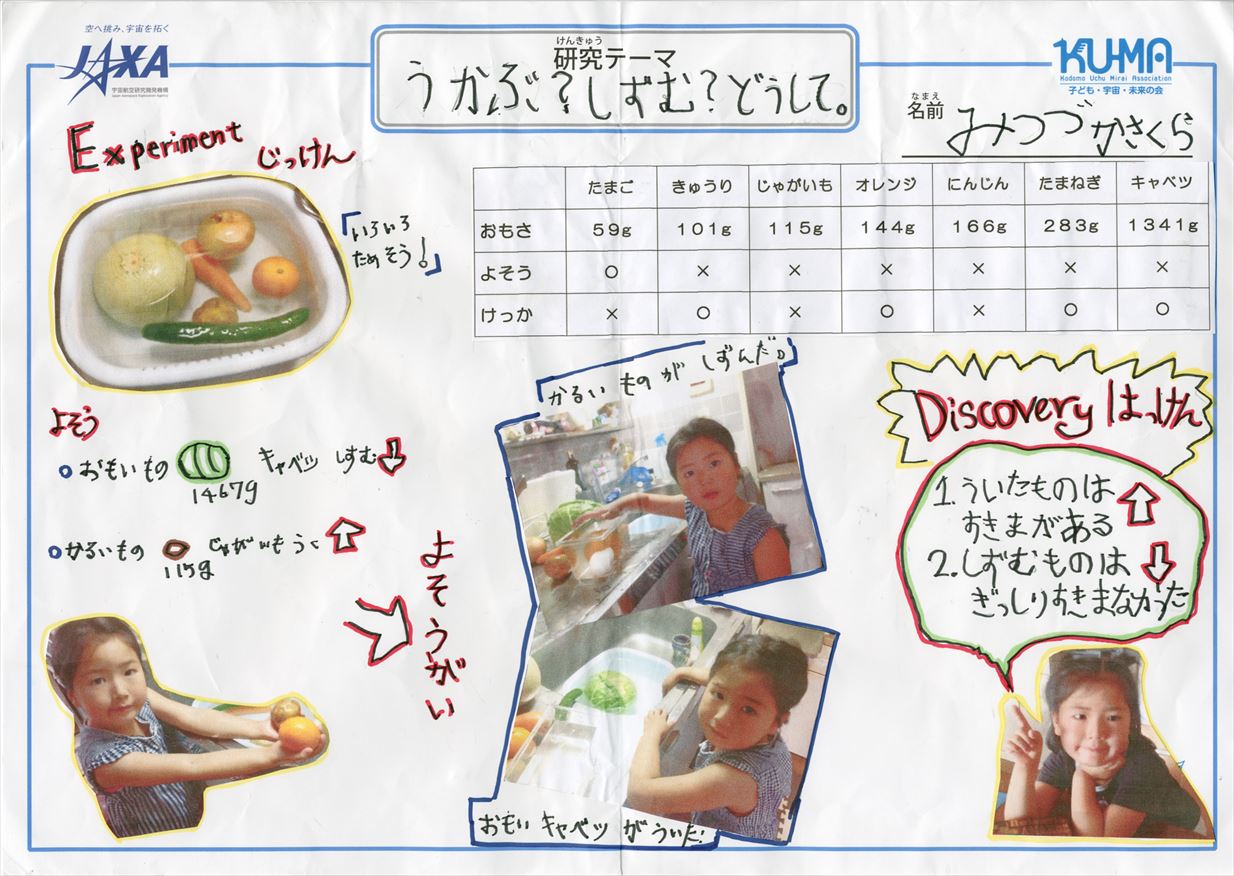 空へ挑み、宇宙を拓く
JAXA
宇宙航空研究開発機構
Japan Aerospace Exploration Agency
けんきゅう
研究テーマ
うかぶ?しずむ?どうして。
KUMA
Kodomo Uchu Mirai Association
子ども・宇宙・未来の会
なまえ
名前
みつづかさくら
Experiment じっけん
「いろいろ
ためそう!」
たまご きゅうり じゃがいも オレンジ にんじん たまねぎ キャベツ
おもさ 59g 101g 115g 144g 166g 283g 1341g
よそう ○ × × × × × ×
けっか × ○ × ○ × ○ ○
よそう
おもいもの キャベツ しずむ
1467g
かるいもの じゃがいも うく
115g
よそうがい
かるいものがしずんだ。
おもいキャベツがういた!
Discovery はっけん
1.ういたものは
すきまがある
2.しずむものは
ぎっしりすきまなかった